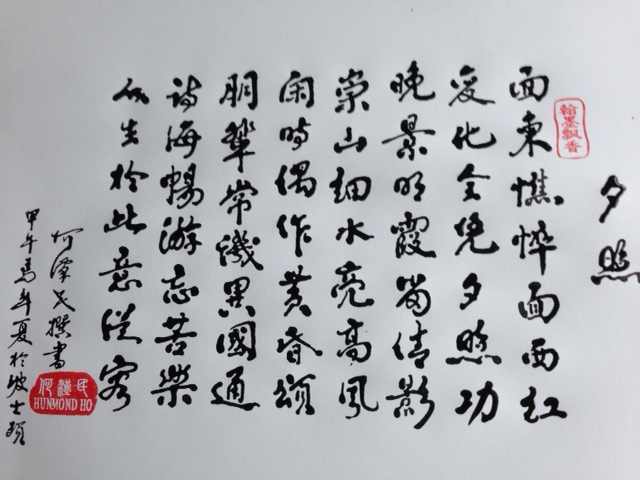 夕照
翰墨飘香
面東憔悴面西红
变化全凭夕照功
晚景明霞留倩影
崇山细水亮高風
闲時偶作黄昏頌
朋輩常譏異國通
詩海暢游忘苦樂
生於此意從容
何漢民撰書
甲午馬年夏於波士頓
何漢民
HUNMOND HO